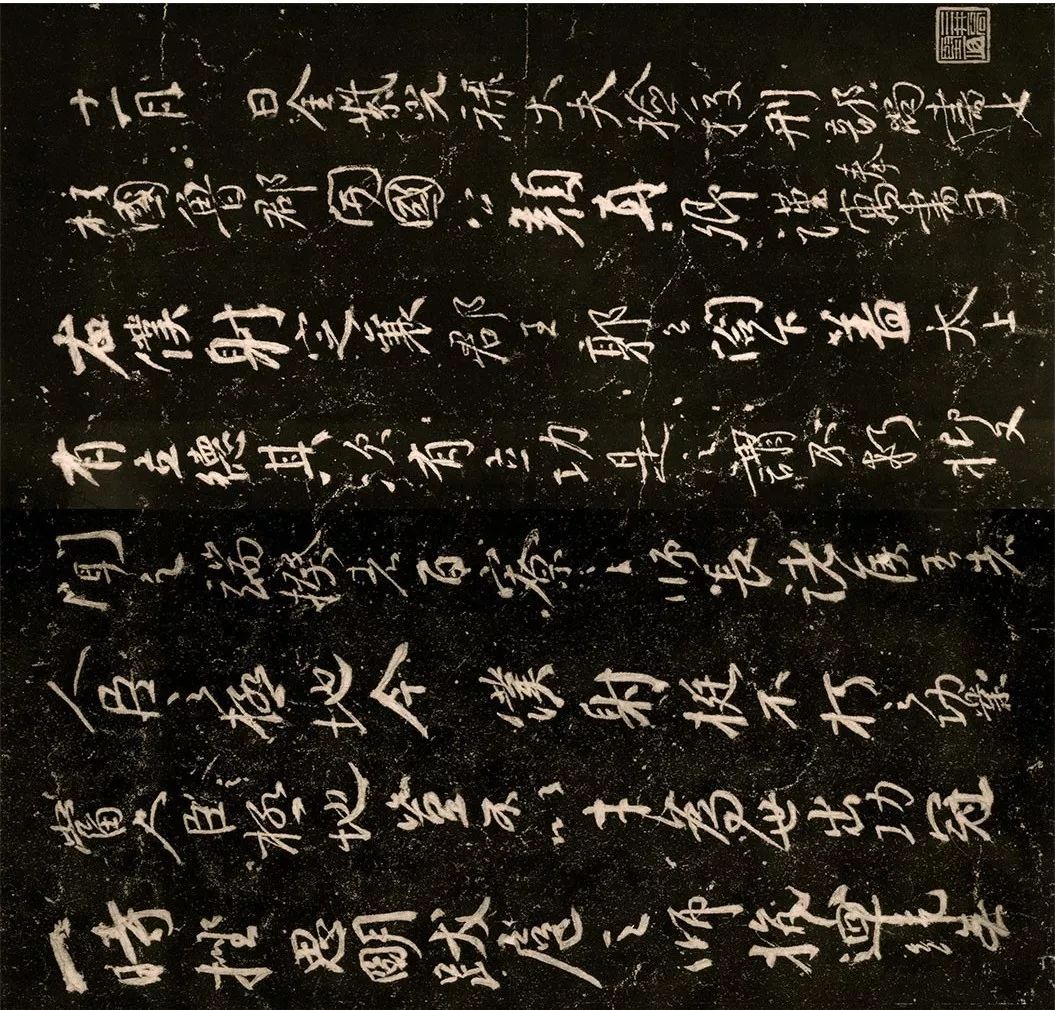 十一月 日金紫光祿大夫檢校刑部尚書上
柱國魯郡開國公顏真卿謹奉寓書于
右僕射定襄郡王郭公閣下蓋太上
有立德其次有立功是之謂不朽抑又
聞之端揆者百寮之師長諸侯王者
人臣之極地今僕射挺不朽之功業
當人臣極地豈不以才為世出功冠
一時挫思明跋扈之師抗迴紇無